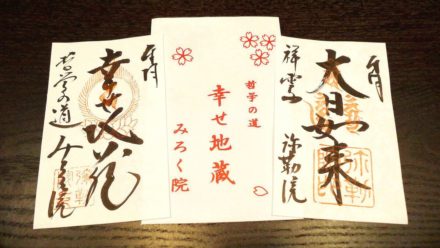 年月
幸せ地蔵
哲学の道
みろく院
哲学の道
幸せ地蔵
みろく院
年月
大日如来
祥雲山
弥勒院